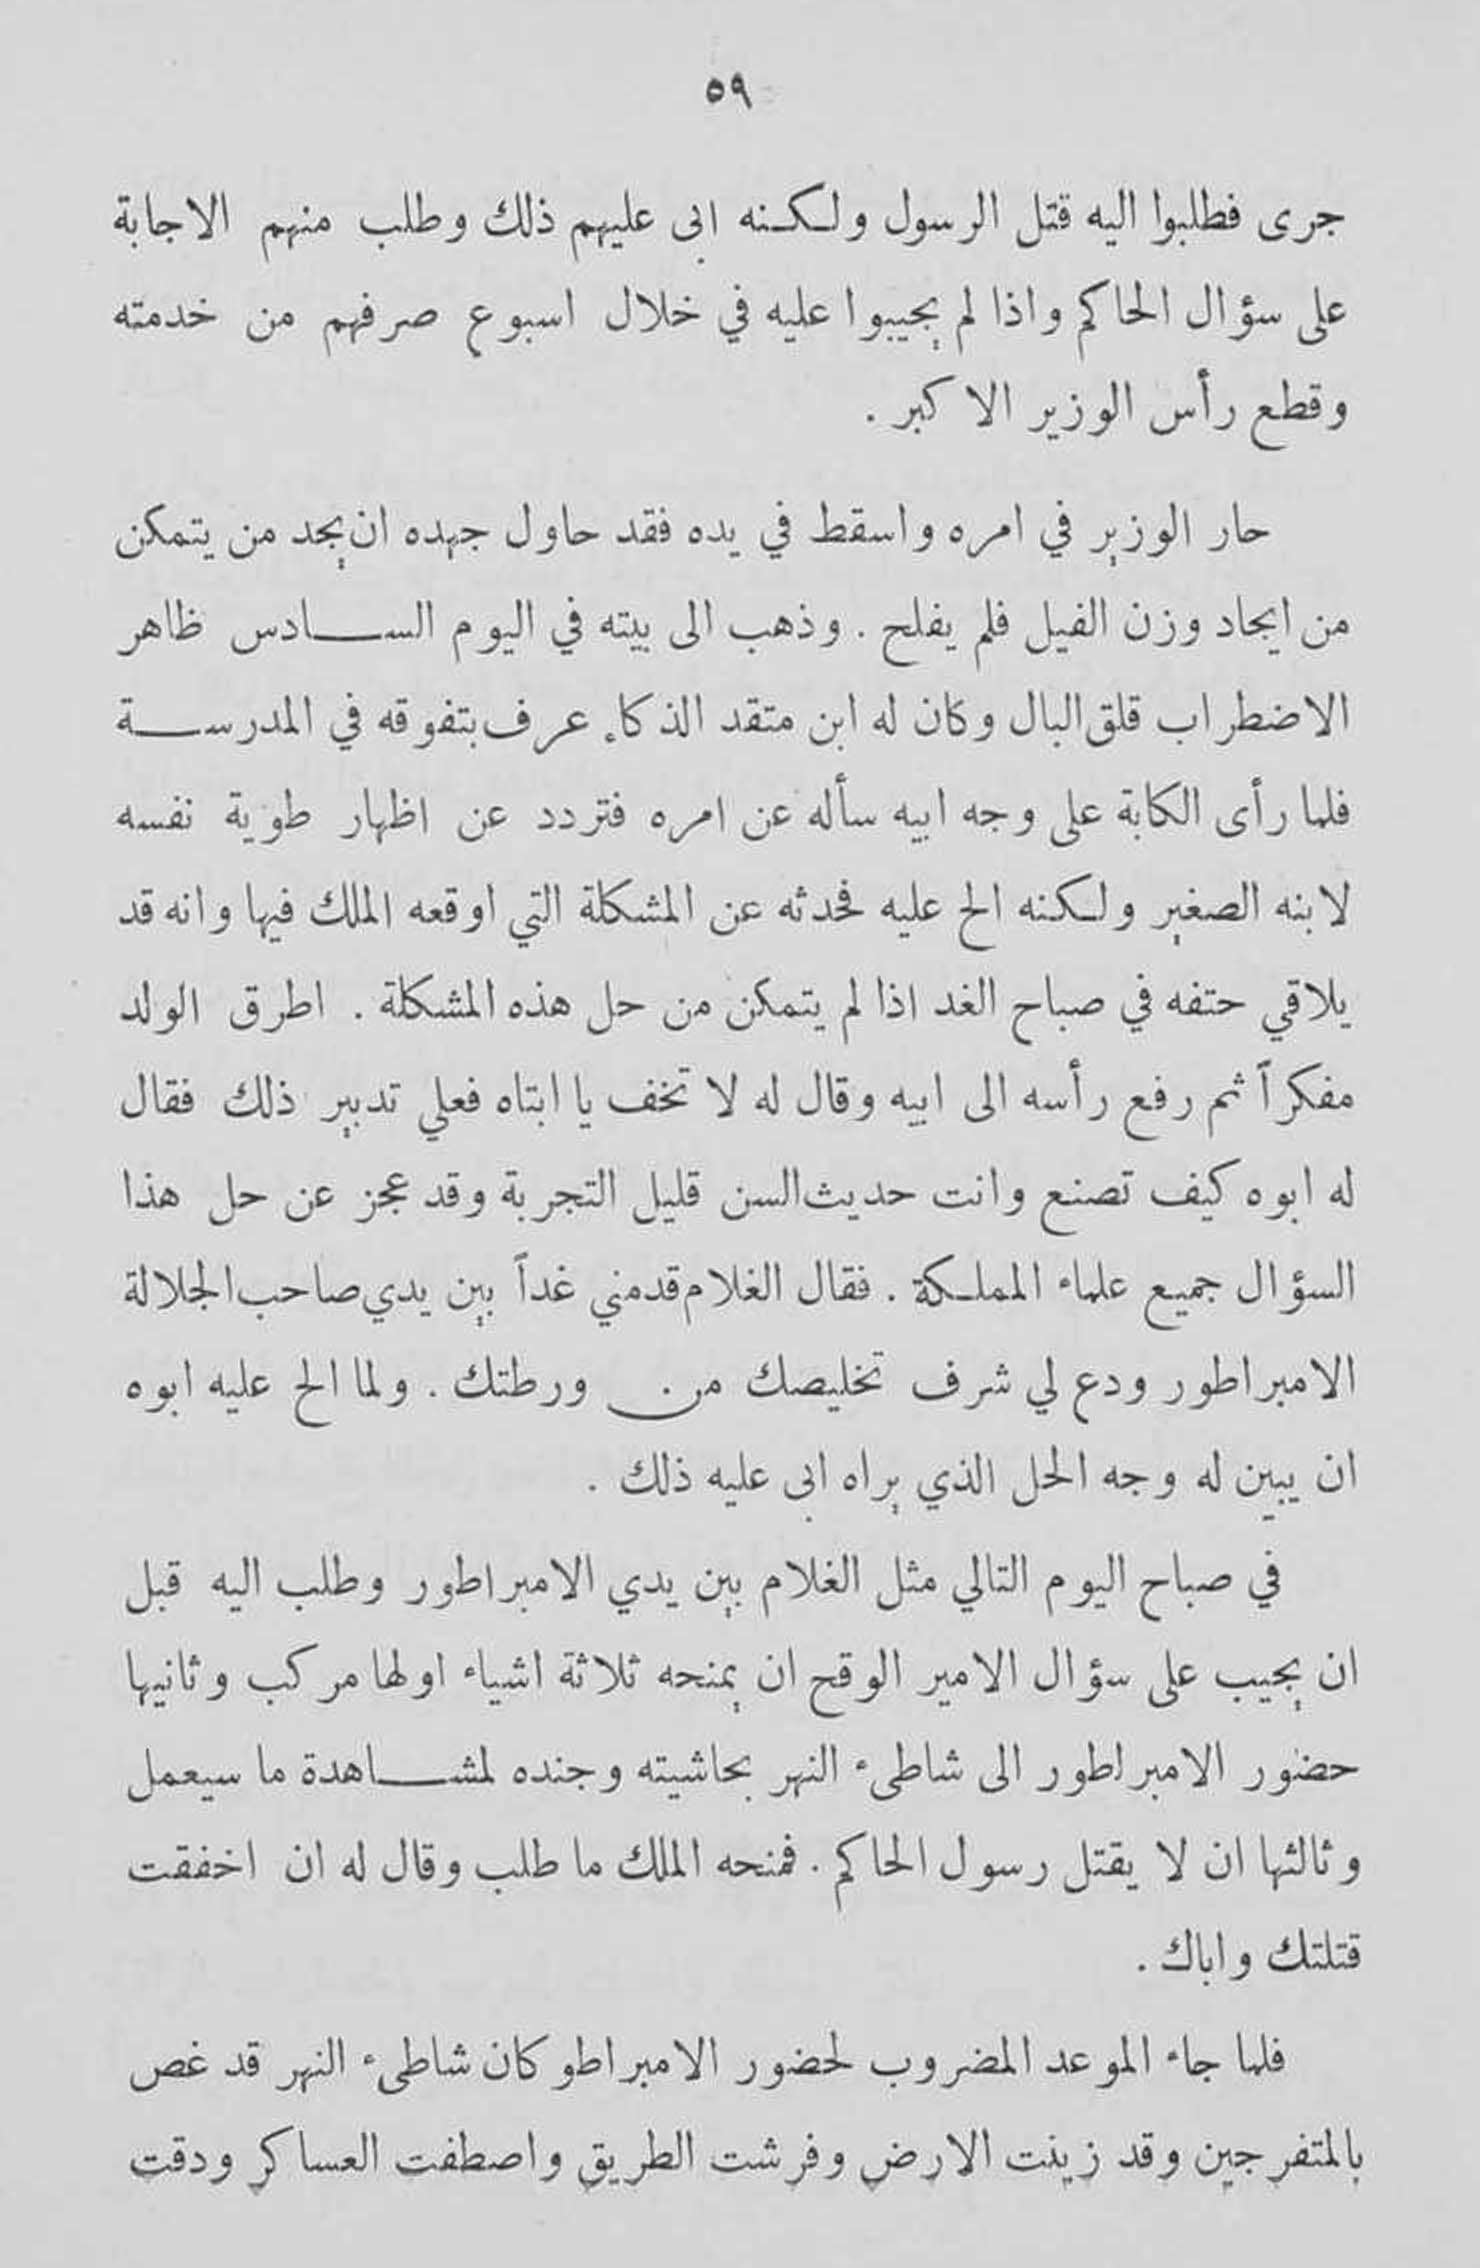 ٥٩
جرى فطلبوا اليه قتل الرسول ولكنه ابى عليهم ذلك وطلب منهم الاجابة
على سؤال الحاكم واذا لم يجيبوا عليه في خلال اسبوع صرفهم من خدمته
وقطع رأس الوزير الاكبر .
حار الوزير في امره واسقط في يده فقد حاول جهده ان يجد من يتمكن
من ايجاد وزن الفيل فلم يفلح . وذهب الى بيته في اليوم السادس ظاهر
الاضطراب قلق البال وكان له ابن متقد الذكاء عرف بتفوقه في المدرسة
فلما رأى الكابة على وجه ابيه سأله عن امره فتردد عن اظهار طوية نفسه
لابنه الصغير ولكنه الح عليه فحدثه عن المشكلة التي اوقعه الملك فيها وانه قد
يلاقي حتفه في صباح الغد اذا لم يتمكن من حل هذه المشكلة . اطرق الولد
مفكراً ثم رفع رأسه الى ابيه وقال له لا تخف يا ابتاه فعلي تدبير ذلك فقال
له ابوه كيف تصنع وانت حديث السن قليل التجربة وقد عجز عن حل هذا
السؤال جميع علماء المملكة . فقال الغلام قدمني غداً بين يدي صاحب الجلالة
الامبراطور ودع لي شرف تخليصك من ورطتك . ولما الح عليه ابوه
ان يبين له وجه الحل الذي يراه ابى عليه ذلك .
في صباح اليوم التالي مثل الغلام بين يدي الامبراطور وطلب اليه قبل
ان يجيب على سؤال الامير الوقح ان يمنحه ثلاثة اشياء اولها مركب وثانيها
حضور الامبراطور الى شاطىء النهر بحاشيته وجنده لمشاهدة ما سيعمل
وثالثها ان لا يقتل رسول الحاكم . فمنحه الملك ما طلب وقال له ان اخفقت
قتلتك واباك .
فلما جاء الموعد المضروب لحضور الامبراطو كان شاطىء النهر قد غص
بالمتفرجين وقد زينت الارض وفرشت الطريق واصطفت العساكر ودقت